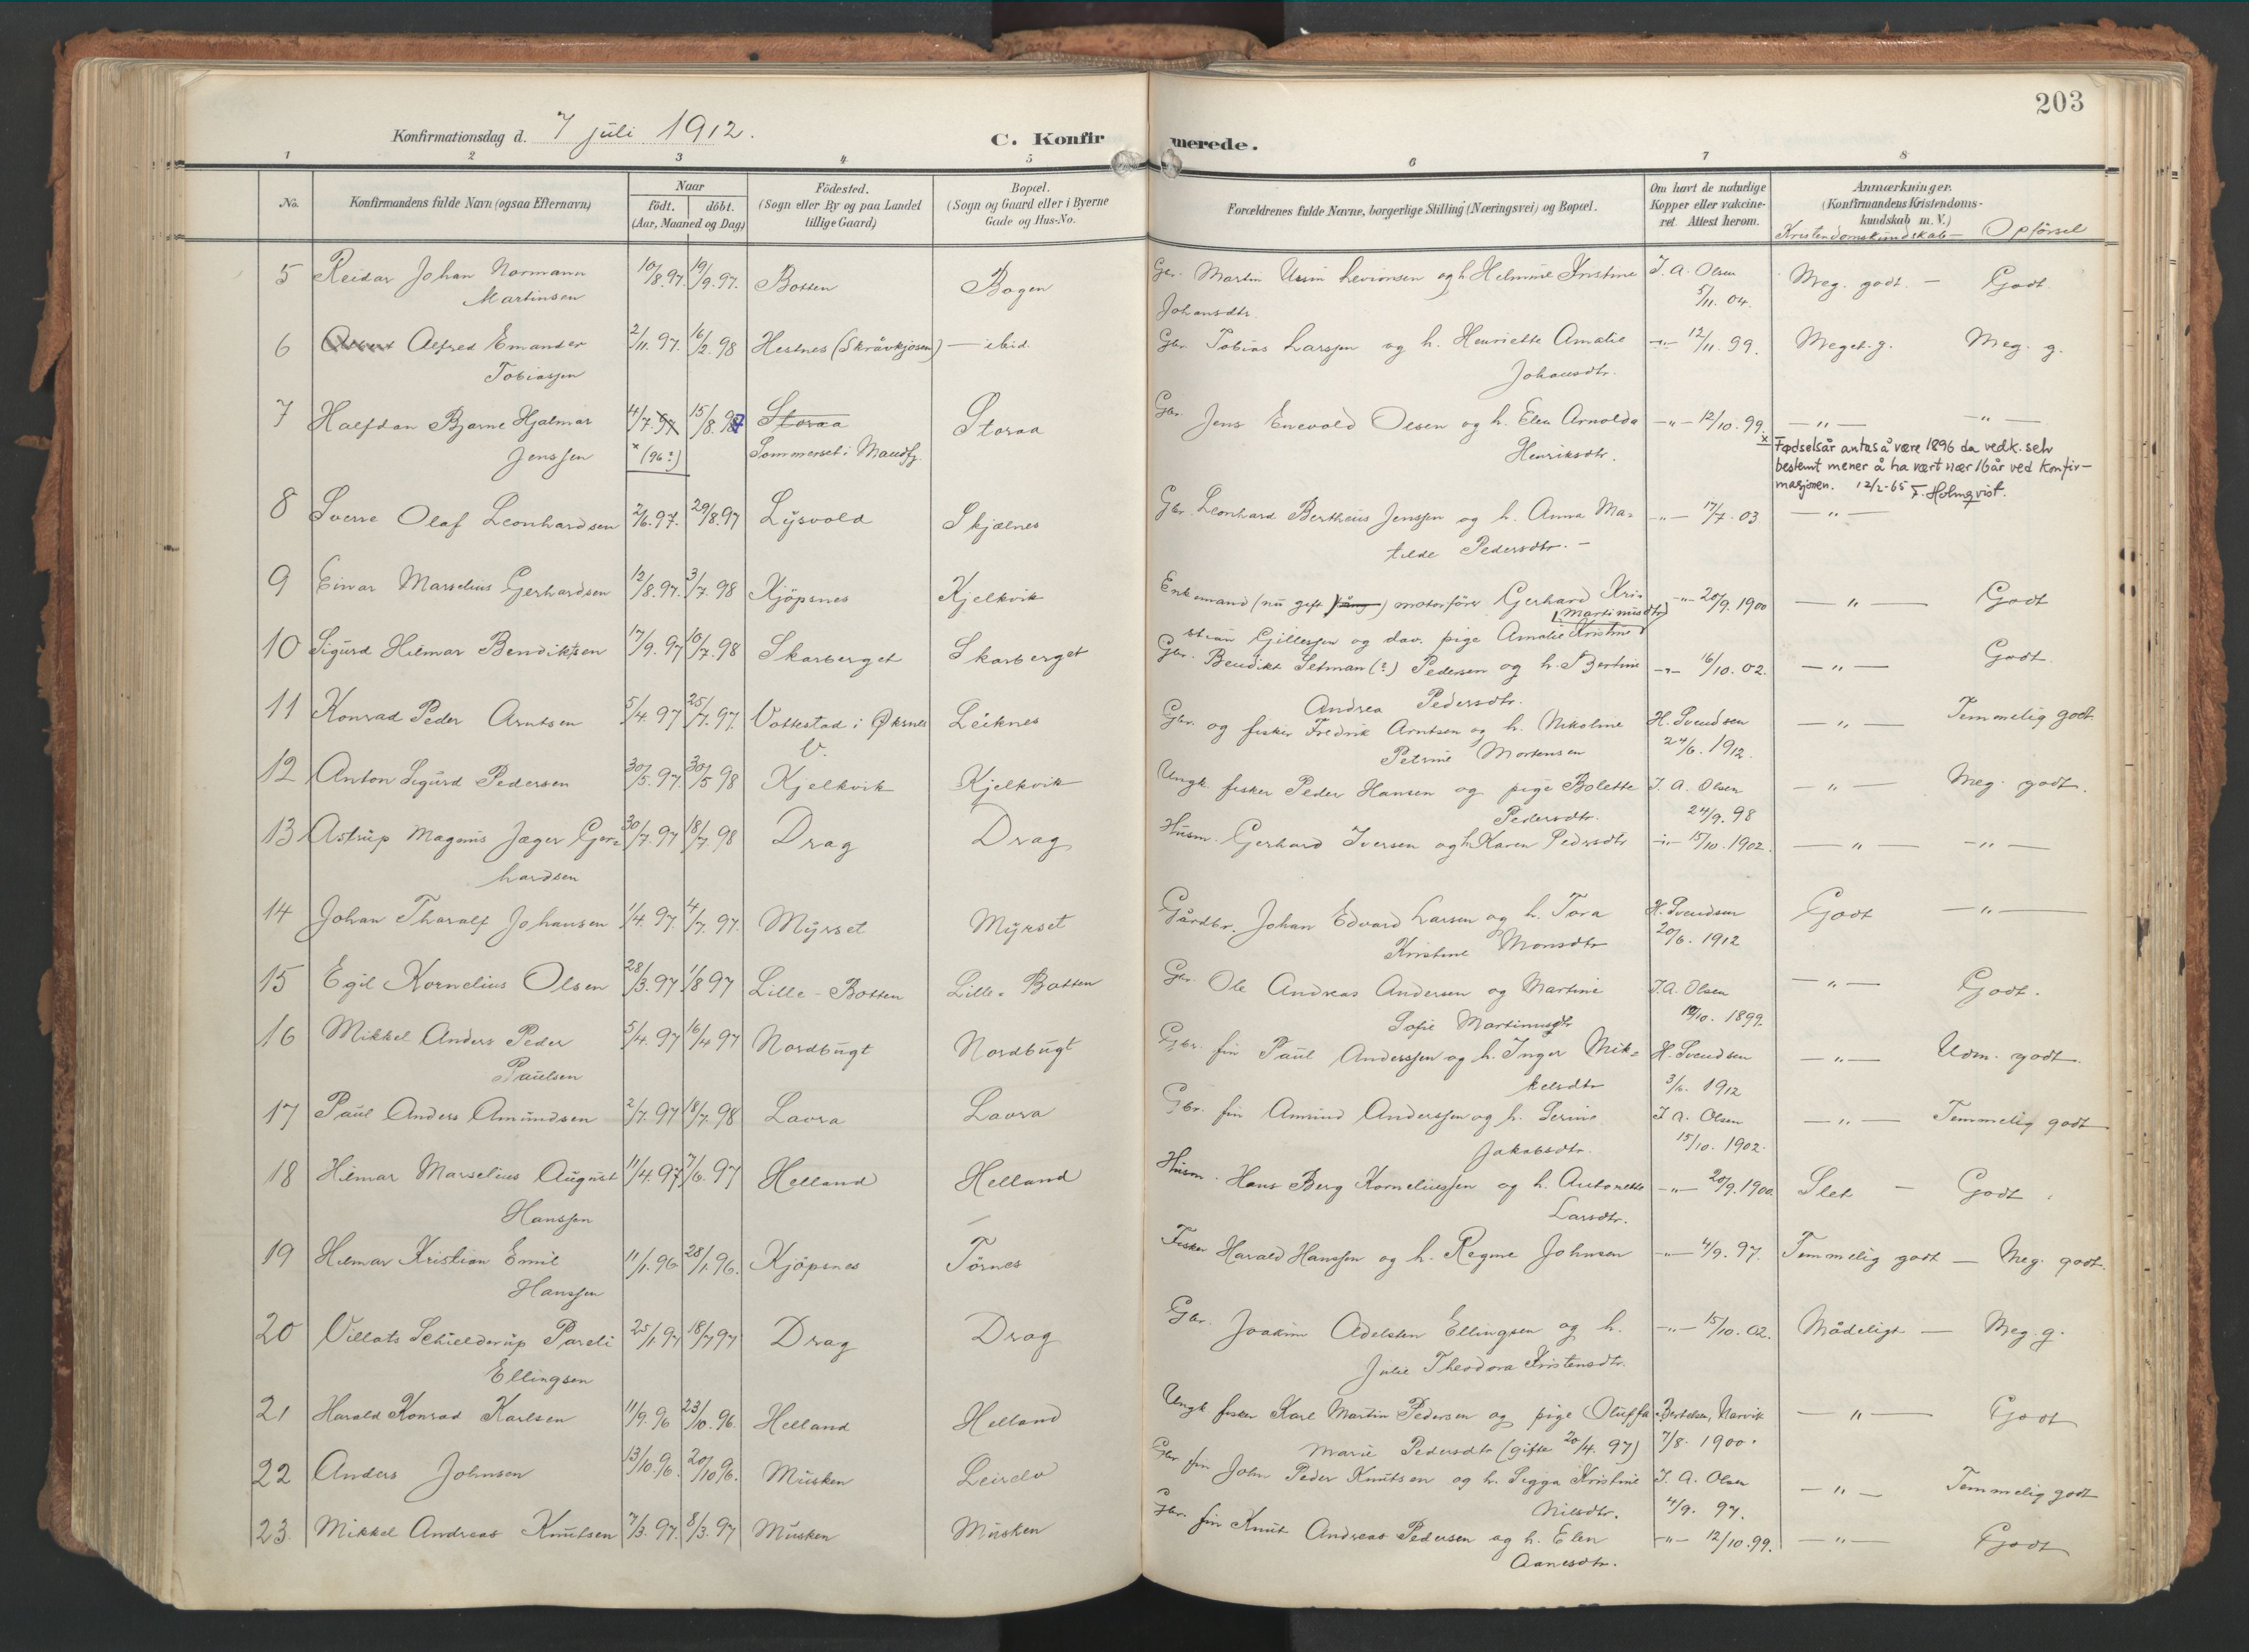 203
Konfirmationsdag d. 7 juli 1912.
C. Konfirmerede.
1 2 3 4 5 6 7 8
No.
Konfirmandens fulde Navn (ogsaa Efternavn)
Naar
födt. döbt.
(Aar, Maaned og Dag)
Födested.
(Sogn eller By og paa Landet
tillige Gaard)
Bopæl.
(Sogn og Gaard eller i Byerne
Gade og Hus-No.
Forældrenes fulde Navne, borgerlige Stilling (Næringsvei) og Bopæl.
Om havt de naturlige
Kopper eller vakcine-
ret. Attest herom.
Anmærkninger.
(Konfirmandens Kristendoms-
kundskab m. V.)
Kristendomskundskab — Opförsel
5 Reidar Johan Normann 10/8.97. 19/9.97. Botten Bogen Gbr. Martin Levionsen og h. Helmine Kristine J. A. Olsen Meg. godt. — Godt.
Martinsen Johansdtr. 5/11. 04.
6 Alfred Emander 2/11. 97. 16/2. 98 Hestnes (Skråvkjosen) — ibid. Gbr. Tobias Larssen og h. Henriette Amalie —"— 12/11. 99. Meget. g. Meg. g.
Tobiassen Johansdtr.
7 Halfdan Bjarne Hjalmar 4/7.97 15/8.97 Storaa Storaa Gbr. Jens Enevold Olsen og h. Elen Arnolda —"— 12/10. 99. —"— —"—
Jenssen × (96?) Sommerset i Mandfj. Henriksdtr. × Fødselsår antas å være 1896 da vedk. selv
bestemt mener å ha vært nær 16 år ved konfir-
masjonen. 12/2-65 F. Holmqvist.
8 Sverre Olaf Leonhardsen 2/6.97. 29/8.97 Lysvold Skjælnes Gbr. Leonhard Bertheus Jenssen og h. Anna Ma- —"— 17/7. 03 —"—
tilde Pedersdtr. —
9 Einar Marselius Gerhardsen 12/8.97. 3/7.98 Kjöpsnes Kjelkvik Enkemand (nu gift) motorförer Gerhard Kri- —"— 20/9. 1900 —"— Godt
Martinusdtr
stian Gillessen og dav. pige Amalie Kristine
10 Sigurd Hilmar Bendiktsen 17/9. 97 10/7.98 Skarberget Skarberget Gbr. Bendikt Setman (?) Pedersen og h. Bertine —"— 16/10. 02. —"— Godt
Andrea Pedersdtr.
11 Konrad Peder Arntsen 5/4. 97 25/7. 97. Vottestad i Øksnes Leiknes Gbr. og fisker Fredrik Arntsen og h. Nikoline H. Svendsen —"— Temmelig godt.
V. Petrine Mortensen 24/6. 1912.
12 Anton Sigurd Pedersen 30/5. 97. 30/5 98 Kjelkvik Kjelkvik Ungk. fisker Peder Hansen og pige Bolette J. A. Olsen —"— Meg. godt.
Pedersdtr. 24/9. 98
13 Astrup Magnus Jæger Ger- 30/7. 97 18/7. 98 Drag Drag Husm. Gerhard Iversen og h. Karen Pedersdtr —"— 15/10. 1902. —"— —"—
hardsen
14 Johan Tharalf Johansen 1/4. 97. 4/7. 97. Myrset Myrset Gårdbr. Johan Edvard Larsen og h. Tora H. Svendsen Godt —"—
Kristine Monsdtr 20/6. 1912
15 Egil Kornelius Olsen 28/3. 97 1/8 97 Lille-Botten Lille-Botten Gbr. Ole Andreas Andersen og Martine J. A. Olsen —"— Godt.
Sofie Martinusdtr 12/10. 1899.
16 Mikkel Anders Peder 5/4. 97 16/4 97 Nordbugt Nordbugt Gbr. fin Paul Anderssen og h. Inger Mik- H. Svendsen —"— Udm. godt.
Paulsen kelsdtr 3/6. 1912
17 Paul Anders Amundsen 2/7. 97 18/7. 98 Lavra Lavra Gbr. fin Amund Anderssen og h. Serine J. A. Olsen —"— Temmelig godt
Jakobsdtr. 15/10. 1902.
18 Hilmar Marselius August 11/4. 97 7/6. 97 Helland Helland Husm. Hans Berg Korneliussen og h. Antonette —"— 20/9. 1900. Slet — Godt.
Hanssen Larsdtr.
19 Hilmar Kristian Emil 11/1. 96 28/1. 96. Kjöpsnes Törnes Fisker Harald Hanssen og h. Regine Johnsen —"— 4/9. 97. Temmelig godt — Meg. godt.
Hanssen
20 Villats Schielderup Pareli 25/1 97 18/7 97 Drag Drag Gbr. Joakim Adelsten Ellingsen og h. —"— 15/10. 02. Mådeligt — Meg. g.
Ellingsen Julie Theodora Kristensdtr.
21 Harald Konrad Karlsen 11/9. 96 23/10. 96. Helland Helland Ungk. fisker Karl Martin Pedersen og pige Oluffa Bertelsen, Narvik —"— Godt
Marie Pedersdtr (gifte 20/4. 97) 7/8. 1900.
22 Anders Johnsen 13/10. 96. 20/10 96. Musken Gbr. fin John Peder Knutsen og h. Sigga Kristine J. A. Olsen —"— Temmelig godt
Nilsdtr. 4/9. 97.
23. Mikkel Andreas Knutsen 7/3. 97. 8/3. 97 Musken Musken Gbr. fin Knut Andreas Pedersen og h. Elen —"— 12/10. 99. —"— Godt
Aanesdtr.